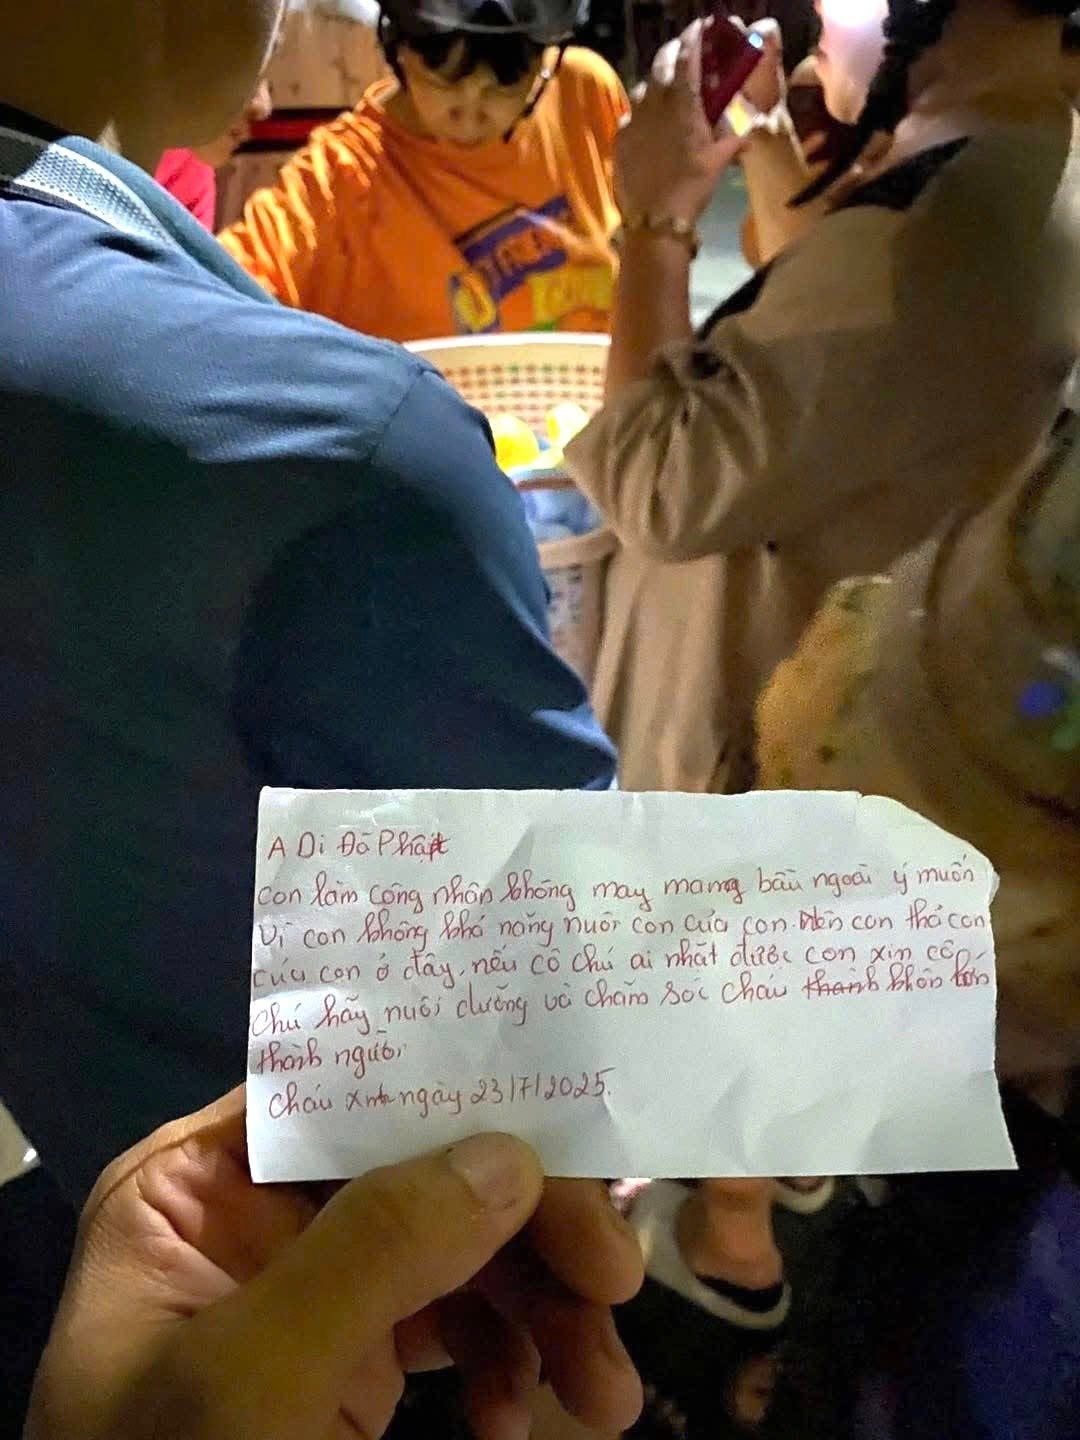 A Di Đà Phật
Con làm công nhân không may mang bầu ngoài ý muốn
Vì con không khả năng nuôi con của con. Nên con thả con
của con ở đây, nếu cô chú ai nhặt được con xin cô
chú hãy nuôi dưỡng và chăm sóc cháu thành khôn lớn
thành người.
Cháu xinh ngày 23/7/2025.